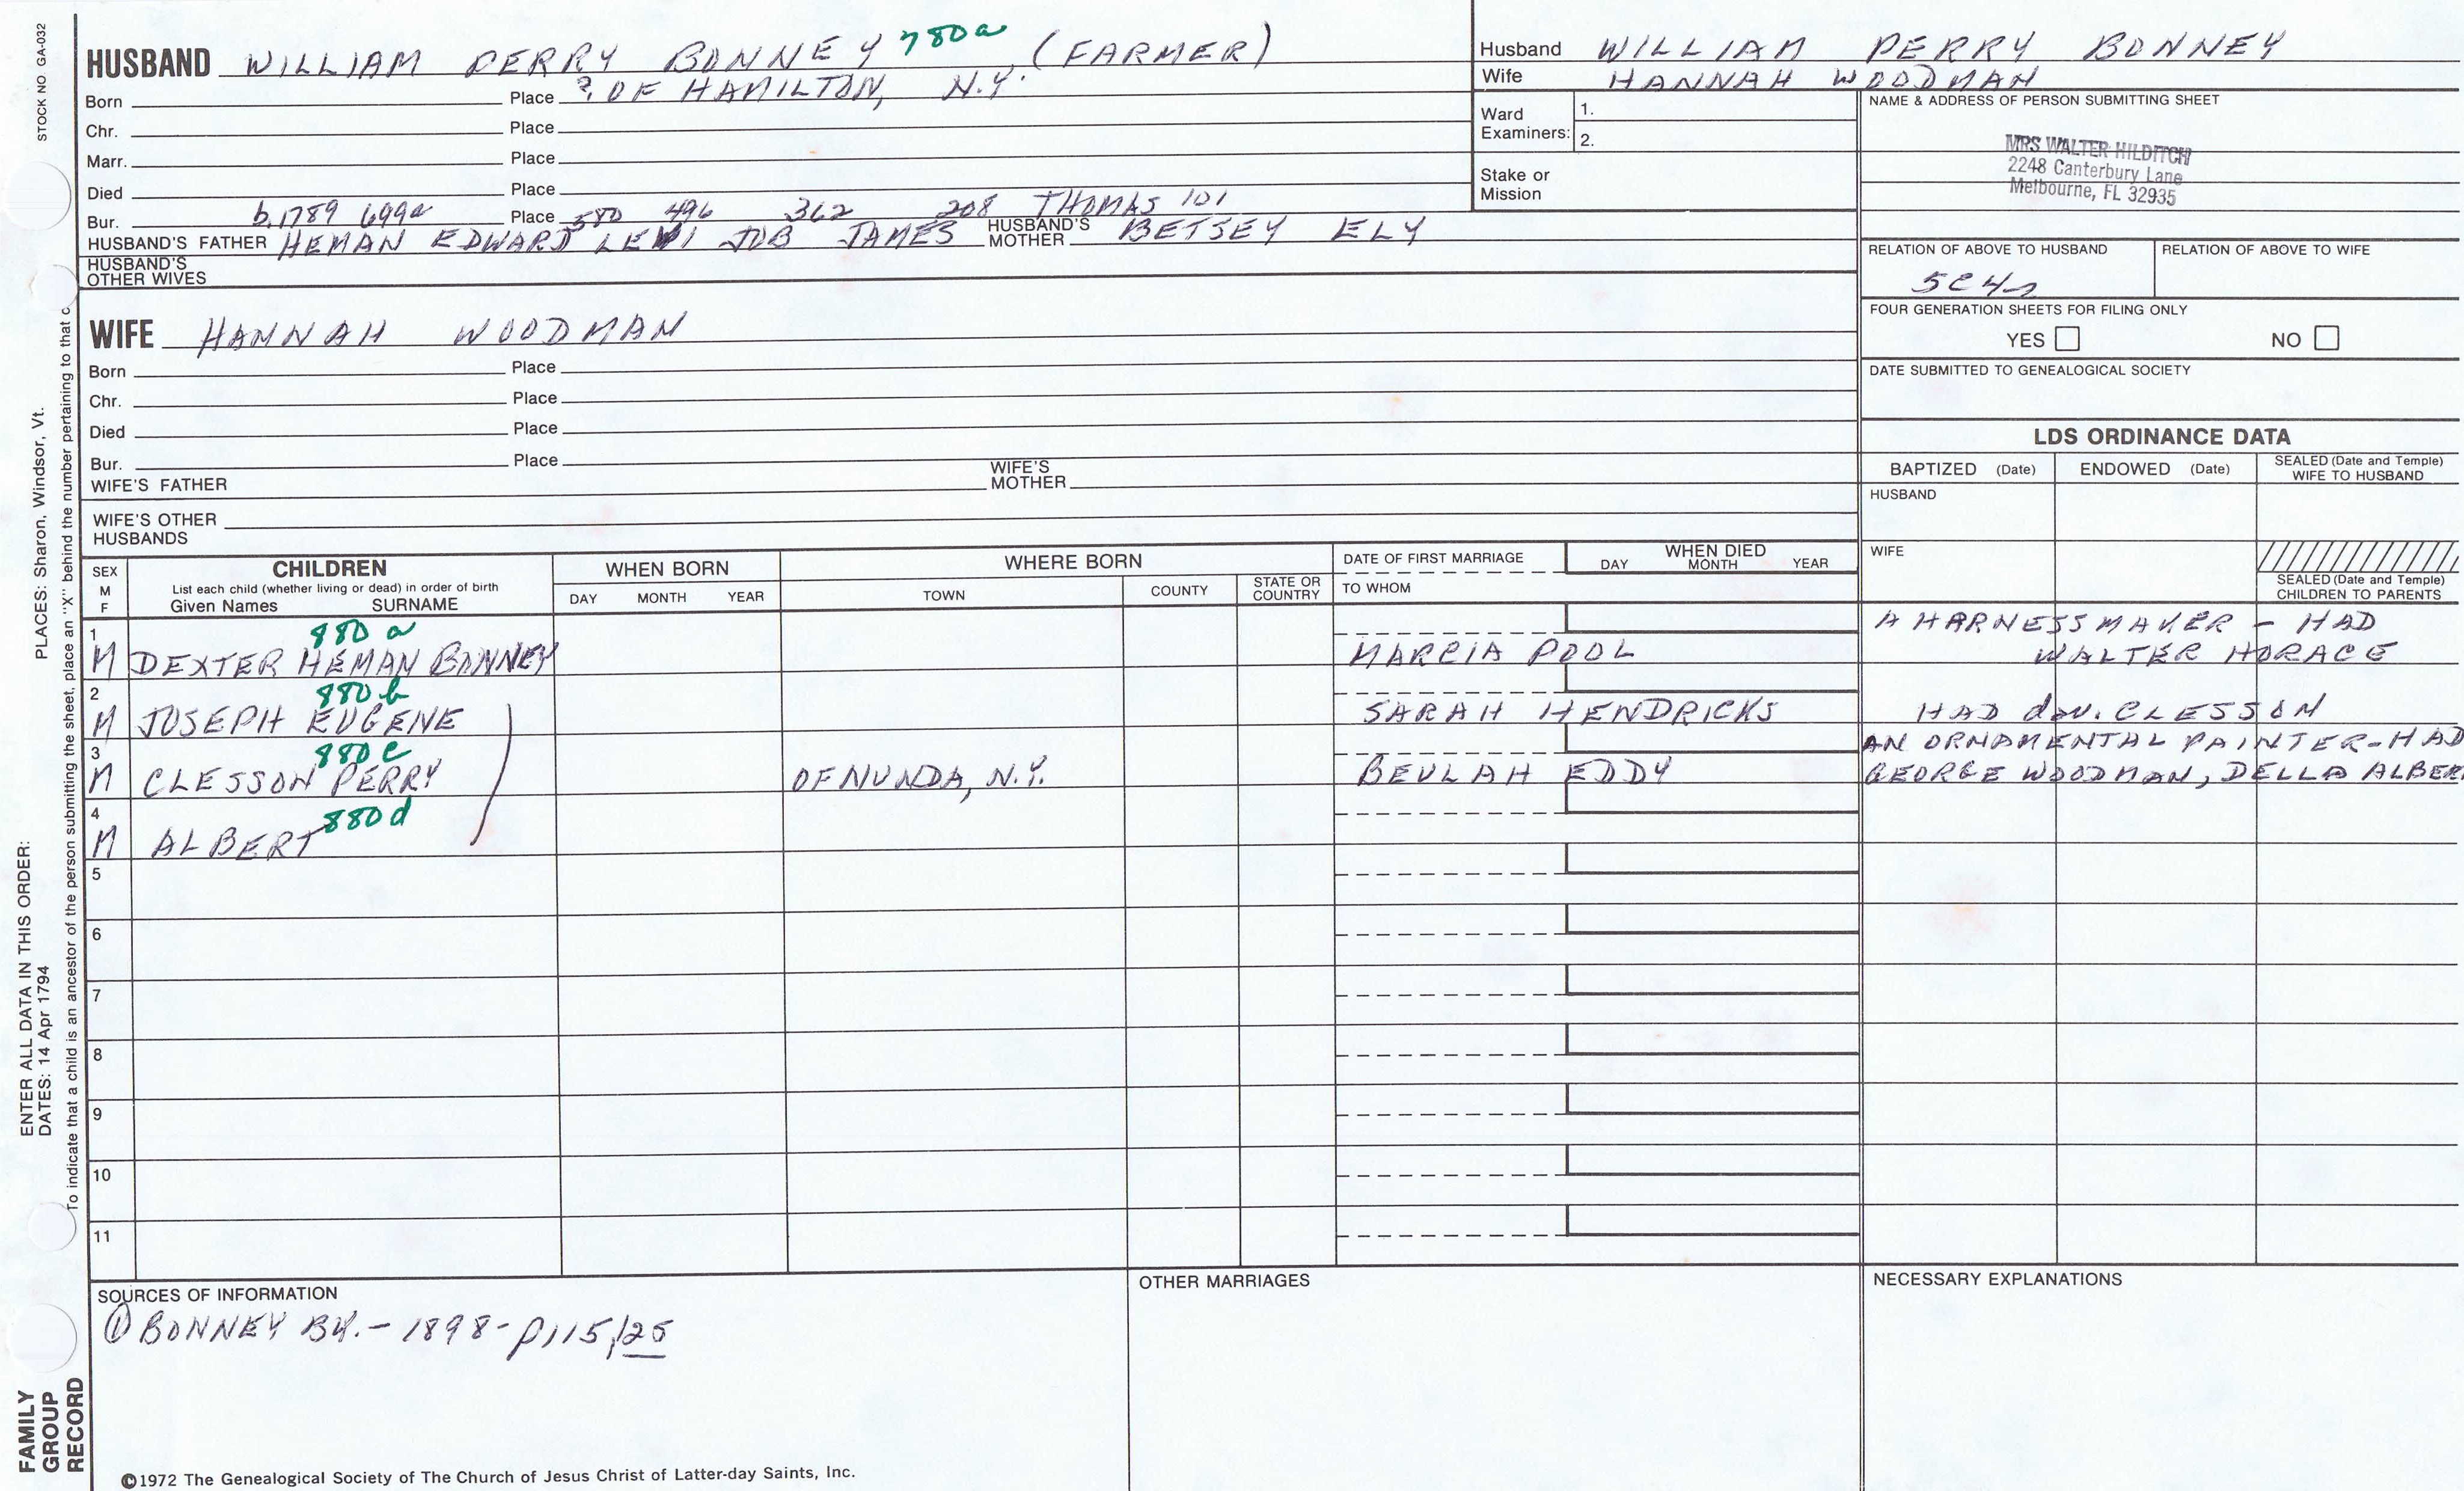 STOCK NO GA-032
PLACES: Sharon, Windsor, Vt.
ENTER ALL DATA IN THIS ORDER:
DATES: 14 Apr 1794
To indicate that a child is an ancestor of the person submitting the sheet, place an "X" behind the number pertaining to that c
FAMILY GROUP RECORD
HUSBAND WILLIAM PERRY BONNEY 780a (FARMER)
Born Place ? OF HAMILTON, N.Y.
Chr. Place
Marr. Place
Died Place
Bur. b.1789 699a Place 580 496 362 208 THOMAS 101
HUSBAND'S FATHER HEMAN EDWARD LEVI JOB JAMES HUSBAND'S MOTHER BETSEY ELY
HUSBAND'S OTHER WIVES
WIFE HANNAH WOODMAN
Born Place
Chr. Place
Died Place
Bur. Place
WIFE'S FATHER WIFE'S MOTHER
WIFE'S OTHER HUSBANDS
Husband WILLIAM PERRY BONNEY
Wife HANNAH WOODMAN
Ward Examiners: 1.
2.
Stake or Mission
NAME & ADDRESS OF PERSON SUBMITTING SHEET
MRS WALTER HILDITCH
2248 Canterbury Lane
Melbourne, FL 32935
RELATION OF ABOVE TO HUSBAND RELATION OF ABOVE TO WIFE
5C4r
FOUR GENERATION SHEETS FOR FILING ONLY
YES NO
DATE SUBMITTED TO GENEALOGICAL SOCIETY
LDS ORDINANCE DATA
BAPTIZED (Date) ENDOWED (Date) SEALED (Date and Temple) WIFE TO HUSBAND
HUSBAND
WIFE
SEALED (Date and Temple) CHILDREN TO PARENTS
SEX M F CHILDREN WHEN BORN WHERE BORN DATE OF FIRST MARRIAGE WHEN DIED
List each child (whether living or dead) in order of birth
Given Names SURNAME DAY MONTH YEAR TOWN COUNTY STATE OR COUNTRY TO WHOM DAY MONTH YEAR
1 880a A HARNESSMAKER - HAD
M DEXTER HEMAN BONNEY MARCIA POOL WALTER HORACE
2 880b
M JOSEPH EUGENE SARAH HENDRICKS HAD dau. CLESSON
3 880c AN ORNAMENTAL PAINTER-HAD
M CLESSON PERRY OF NUNDA, N.Y. BEULAH EDDY GEORGE WOODMAN, DELLA ALBER
4 880d
M ALBERT
5
6
7
8
9
10
11
SOURCES OF INFORMATION OTHER MARRIAGES NECESSARY EXPLANATIONS
① BONNEY BK.- 1898- p115,125
©1972 The Genealogical Society of The Church of Jesus Christ of Latter-day Saints, Inc.